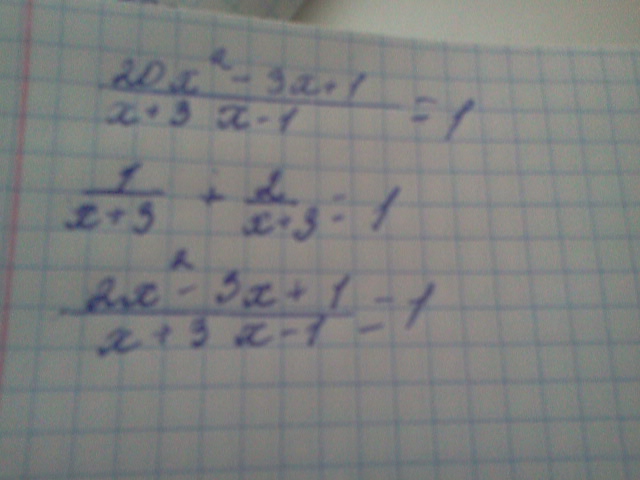 20x² - 3x + 1
x + 3 x - 1 = 1
1 + 2 = 1
x + 3 x + 3
2x² - 3x + 1 = 1
x + 3 x - 1